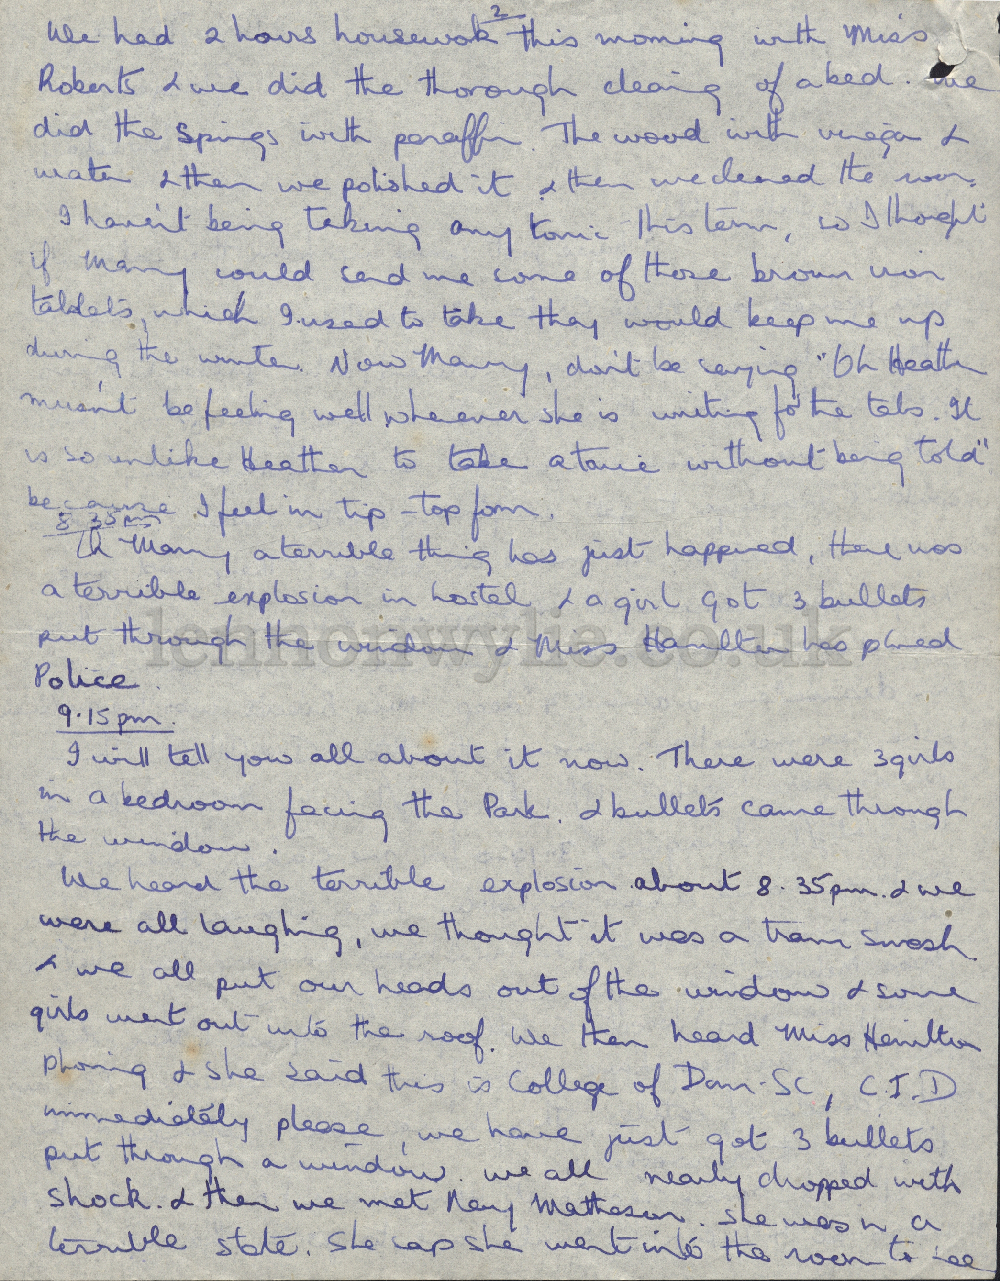 2
We had 2 hours housework this morning with Miss
Roberts & we did the thorough cleaing of a bed. We
did the springs with paraffin. The wood with vinegar &
water & then we polished it & then we cleaned the room.
I haven't being taking any tonic this term, so I thought
if Mammy could send me some of those brown iron
tablets, which I used to take they would keep me up
during the winter. Now Mammy, don't be saying "Oh Heather
musn't be feeling well whenever she is writing for the tabs. It
is so unlike Heather to take a tonic without being told"
because I feel in tip-top form.
8 35pm
Oh Mammy a terrible thing has just happened, there was
a terrible explosion in hostel & a girl got 3 bullets
put through the window & Miss Hamilton has phoned
Police.
9.15pm.
I will tell you all about it now. There were 3 girls
in a bedroom facing the Park. & bullets came through
the window.
We heard the terrible explosion about 8.35pm. & we
were all laughing, we thought it was a tram smash.
& we all put our heads out of the window & some
girls went out into the roof. We then heard Miss Hamilton
phoning & she said this is College of Dom-Sc, C.I.D
immediately please, we have just got 3 bullets
put through a window. we all nearly dropped with
shock. & then we met Mary Matheson. She was in a
terrible state. She says she went into the room to see
lennonwylie.co.uk